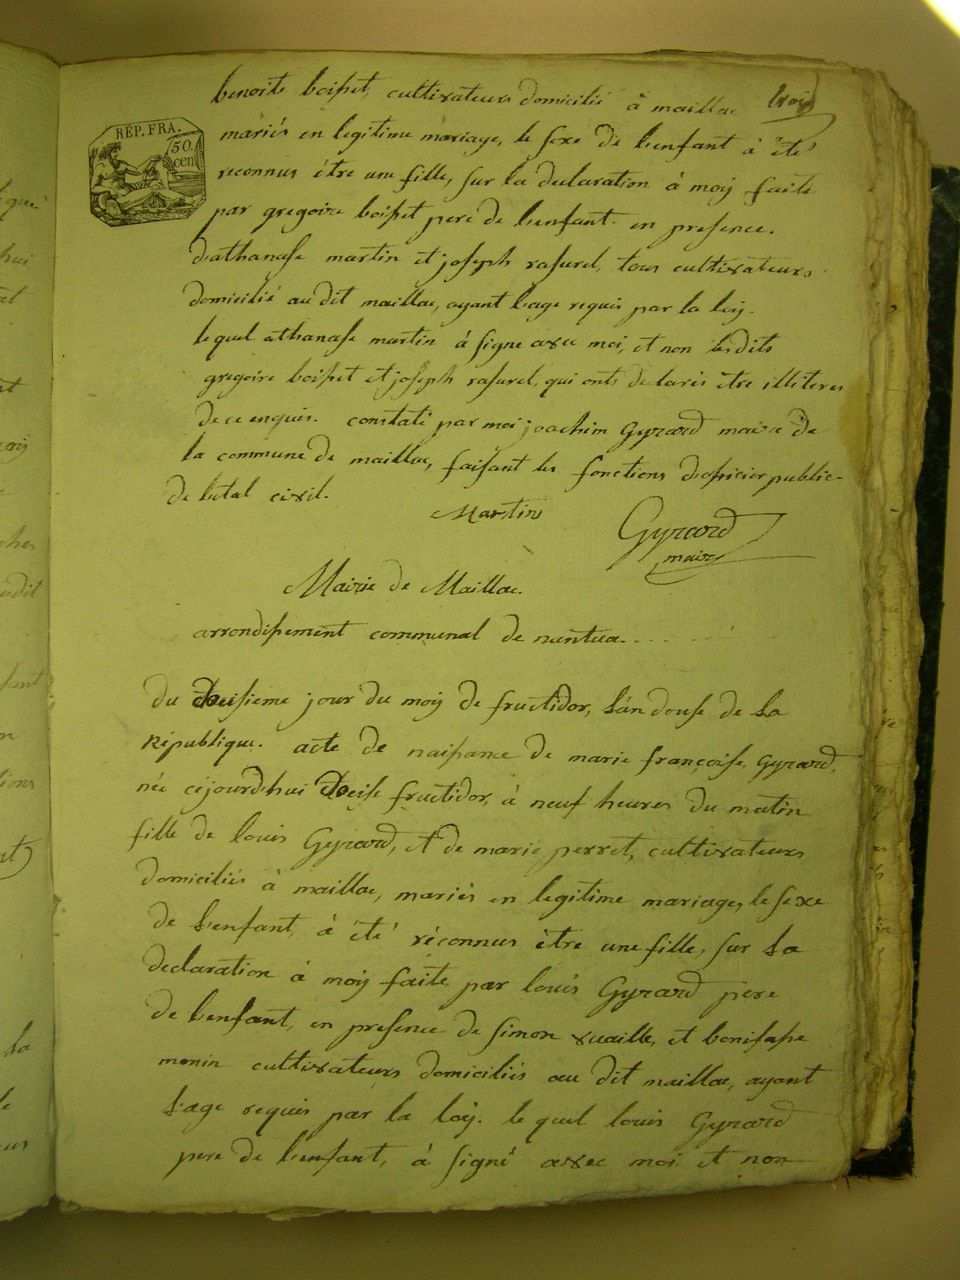 trois
RÉP. FRA.
50
cen
benoite boisset, cultivateurs domicilié à maillac
mariés en legitime mariage, le sexe de l'enfant à été
reconnus être une fille, sur la declaration à moy faite
par gregoire boisset pere de l'enfant. en presence.
d'athanase martin et joseph rasurel, tous cultivateurs
domicilié au dit maillac, ayant l'age requis par la loy.
le quel athanase martin à signe avec moi, et non lesdits
gregoire boisset et joseph rasurel, qui onts declarés être illiteres
de ce enquis. constaté par moi joachim Gyrard maire de
la commune de maillac, faisant les fonctions d'officier public
de l'etal civil.
Martin
Gyrard
maire
Mairie de Maillac.
arrondissement communal de nantua.
du jour du moy de fructidor, l'an douse de la
République. acte de naissance de marie françoise, Gyrard,
née cejourd'hui fructidor, à neuf heures du matin
fille de louis Gyrard, et de marie perret, cultivateurs
domiciliés à maillac, mariés en legitime mariage, le sexe
de l'enfant, à été réconnus être une fille, sur la
declaration à moy faite par louis Gyrard pere
de l'enfant, en presence de simon vuaille, et bonifasse
monin cultivateurs domiciliés au dit maillac, ayant
l'age requis par la loy. le quel louis Gyrard
pere de l'enfant, à signé avec moi et non